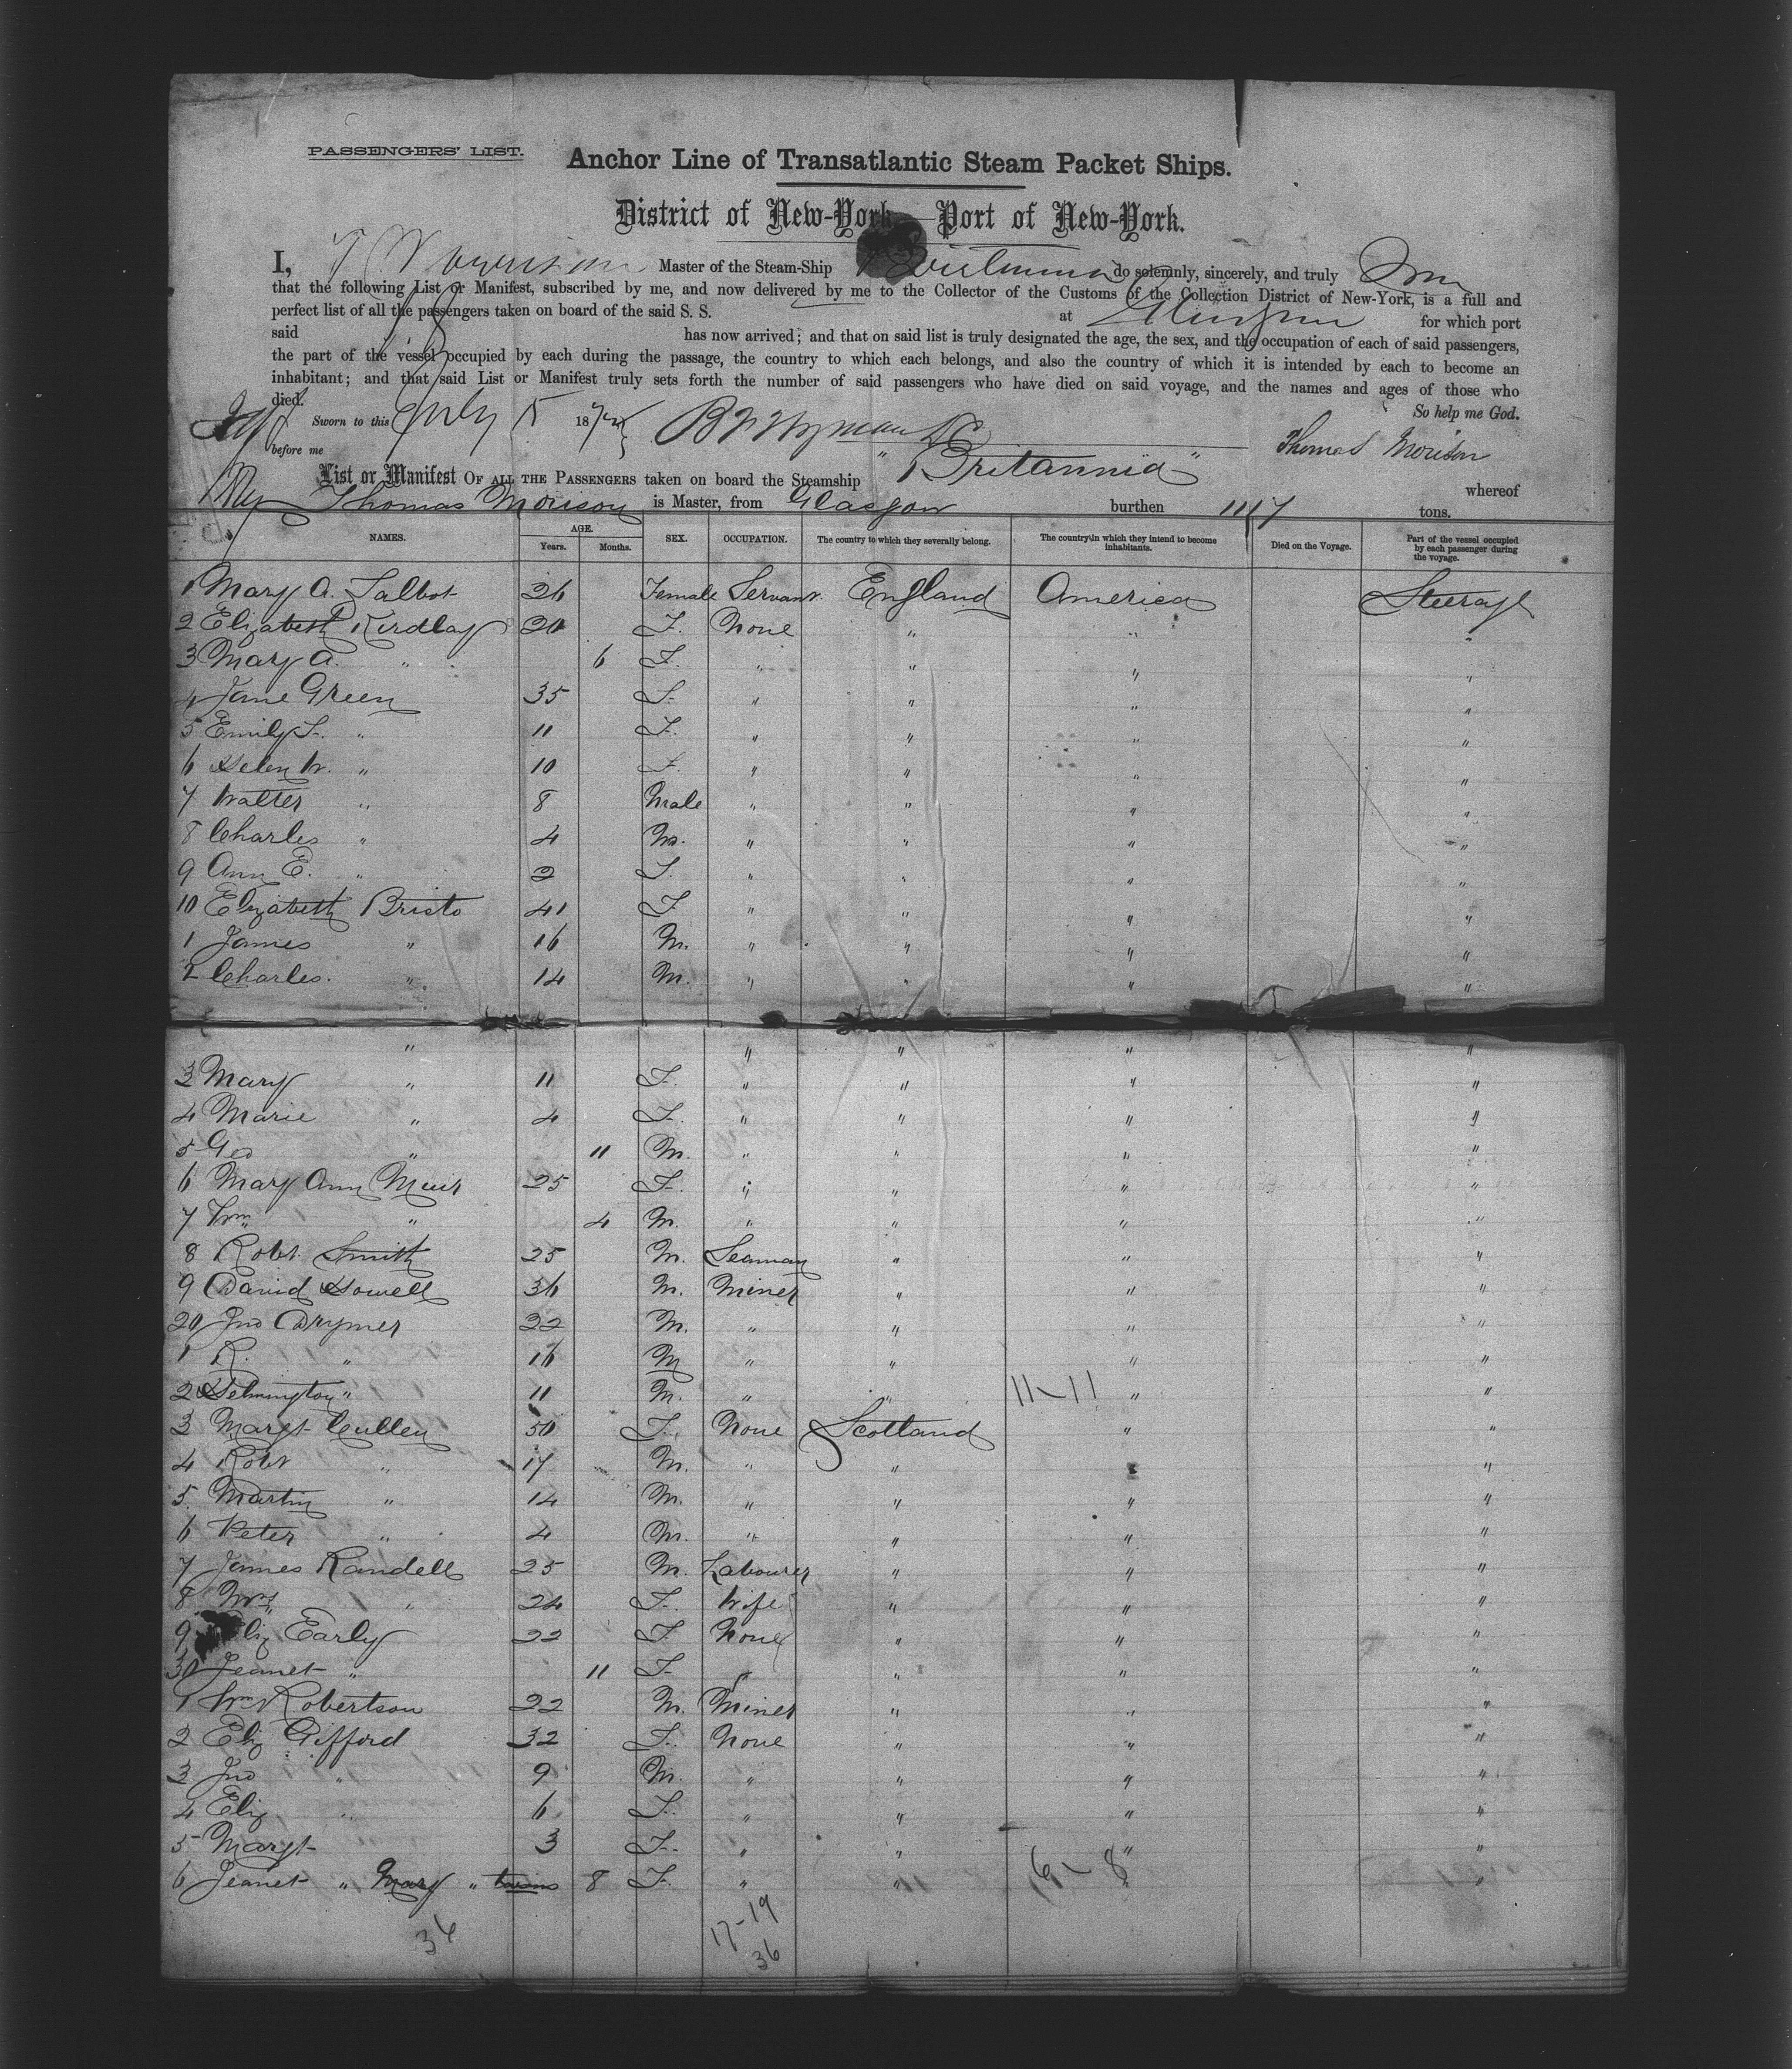 PASSENGERS' LIST.
Anchor Line of Transatlantic Steam Packet Ships.
District of New-York Port of New-York.
I, T Morrison Master of the Steam-Ship do solemnly, sincerely, and truly
that the following List or Manifest, subscribed by me, and now delivered by me to the Collector of the Customs of the Collection District of New-York, is a full and
perfect list of all the passengers taken on board of the said S. S. at Glasgow for which port
said has now arrived; and that on said list is truly designated the age, the sex, and the occupation of each of said passengers,
the part of the vessel occupied by each during the passage, the country to which each belongs, and also the country of which it is intended by each to become an
inhabitant; and that said List or Manifest truly sets forth the number of said passengers who have died on said voyage, and the names and ages of those who
died.
So help me God.
Sworn to this July 5 187
before me
Thomas Morison
List or Manifest OF ALL THE PASSENGERS taken on board the Steamship "Britannia" whereof
Thomas Morison is Master, from Glasgow burthen tons.
NAMES. AGE. Years. Months. SEX. OCCUPATION. The country to which they severally belong. The country in which they intend to become inhabitants. Died on the Voyage. Part of the vessel occupied by each passenger during the voyage.
1 Mary A. Talbot 26 Female Servant England America Steerage
2 Elizabeth 20 F. None " " "
3 Mary A. " 6 F. " " " "
4 Jane Green 35 F. " " " "
5 Emily F. " 11 F. " " " "
6 Helen W. " 10 F. " " " "
7 Walter " 8 Male " " " "
8 Charles " 4 M. " " " "
9 Ann E. " 2 F. " " " "
10 Elizabeth Bristo 41 F. " " " "
1 James " 16 M. " " " "
2 Charles. " 14 M. " " " "
" " " " "
3 Mary " 11 F. " " " "
4 Marie " 4 F. " " " "
5 Geo " 11 M. " " " "
6 Mary Ann Muir 25 F. " " " "
7 Wm " 4 M. " " " "
8 Robt. Smith 25 M. Seaman " " "
9 David Howell 36 M. Miner " " "
20 Jno Drymer 22 M. " " " "
1 R. " 16 M " " " "
2 " 11 M. " " 11-11 " "
3 Margt Cullen 50 F. None Scotland " "
4 Robt " 17 M. " " " "
5. Martin " 14 M. " " " "
6 Peter " 4 M. " " " "
7 James Randell 25 M. Labourer " " "
8 Mrs " 24 F. Wife " " "
9 Eliz Early 22 F. None " " "
30 Jeanet " 11 F. " " " "
1 Wm Robertson 22 M. Miner " " "
2 Eliz Gifford 32 F. None " " "
3 Jno " 9 M. " " " "
4 Eliz " 6 F. " " " "
5 Margt 3 F. " " " "
6 Jeanet " Mary " twins 8 F. " " 6-8 " "
17-19
36